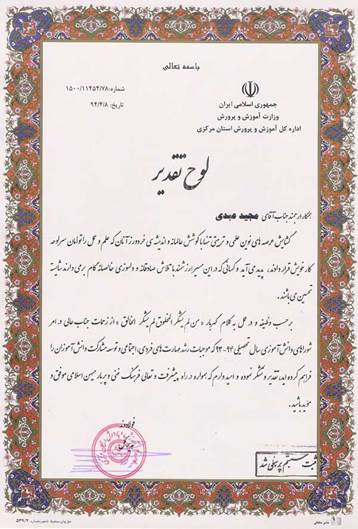 باسمه تعالی
شماره: ۱۵۰۰/۱۱۴۵۴/۷۸
تاریخ: ۹۴/۴/۸
جمهوری اسلامی ایران
وزارت آموزش و پرورش
اداره کل آموزش و پرورش استان مرکزی
لوح تقدیر
همکار ارجمند جناب آقای مجید عبدی
گشایش عرصه های نوین علمی و تربیتی تنها با کوشش عالمانه و اندیشه ی خردورز آنان که علم و عمل را توأمان سرلوحه
کار خویش قرار داده‌اند، پدید می آید و کسانی که در این مسیر ارزشمند با تلاش صادقانه و دلسوزی خالصانه گام برمی دارند شایسته
تحسین می باشند.
برحسب وظیفه و در عمل به کلام گهربار « من لم یشکر المخلوق لم یشکر الخالق » از زحمات جناب عالی در امر
شوراهای دانش آموزی سال تحصیلی ۹۴-۹۳ که موجبات رشد مهارت های فردی، اجتماعی و توسعه مشارکت دانش آموزان را
فراهم کرده اید، تقدیر و تشکر نموده و امید دارم که همواره در راه پیشرفت و تعالی فرهنگ غنی و پربار میهن اسلامی موفق و
مؤید باشید.
ثبت سیستم پرسنلی شد